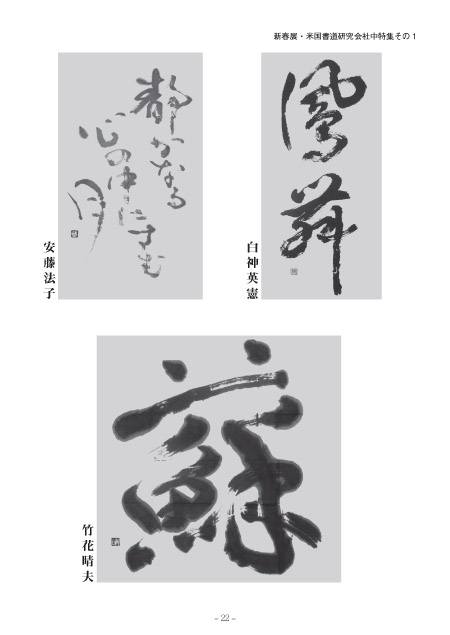 新春展・米国書道研究会社中特集その1
鳳舞
白神英憲
静かなる
心の中にすむ
月
安藤法子
蘇
竹花晴夫
- 22 -